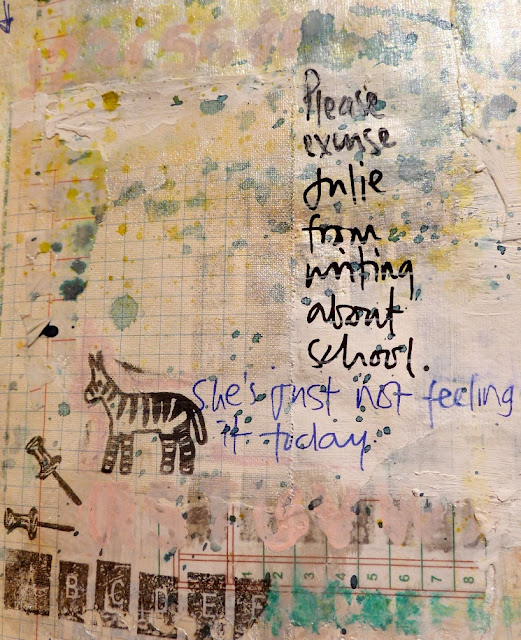 Please
excuse
Julie
from
writing
about
school.
She's just not feeling
it today
A B C D E F
1 2 3 4 5 6 7 8